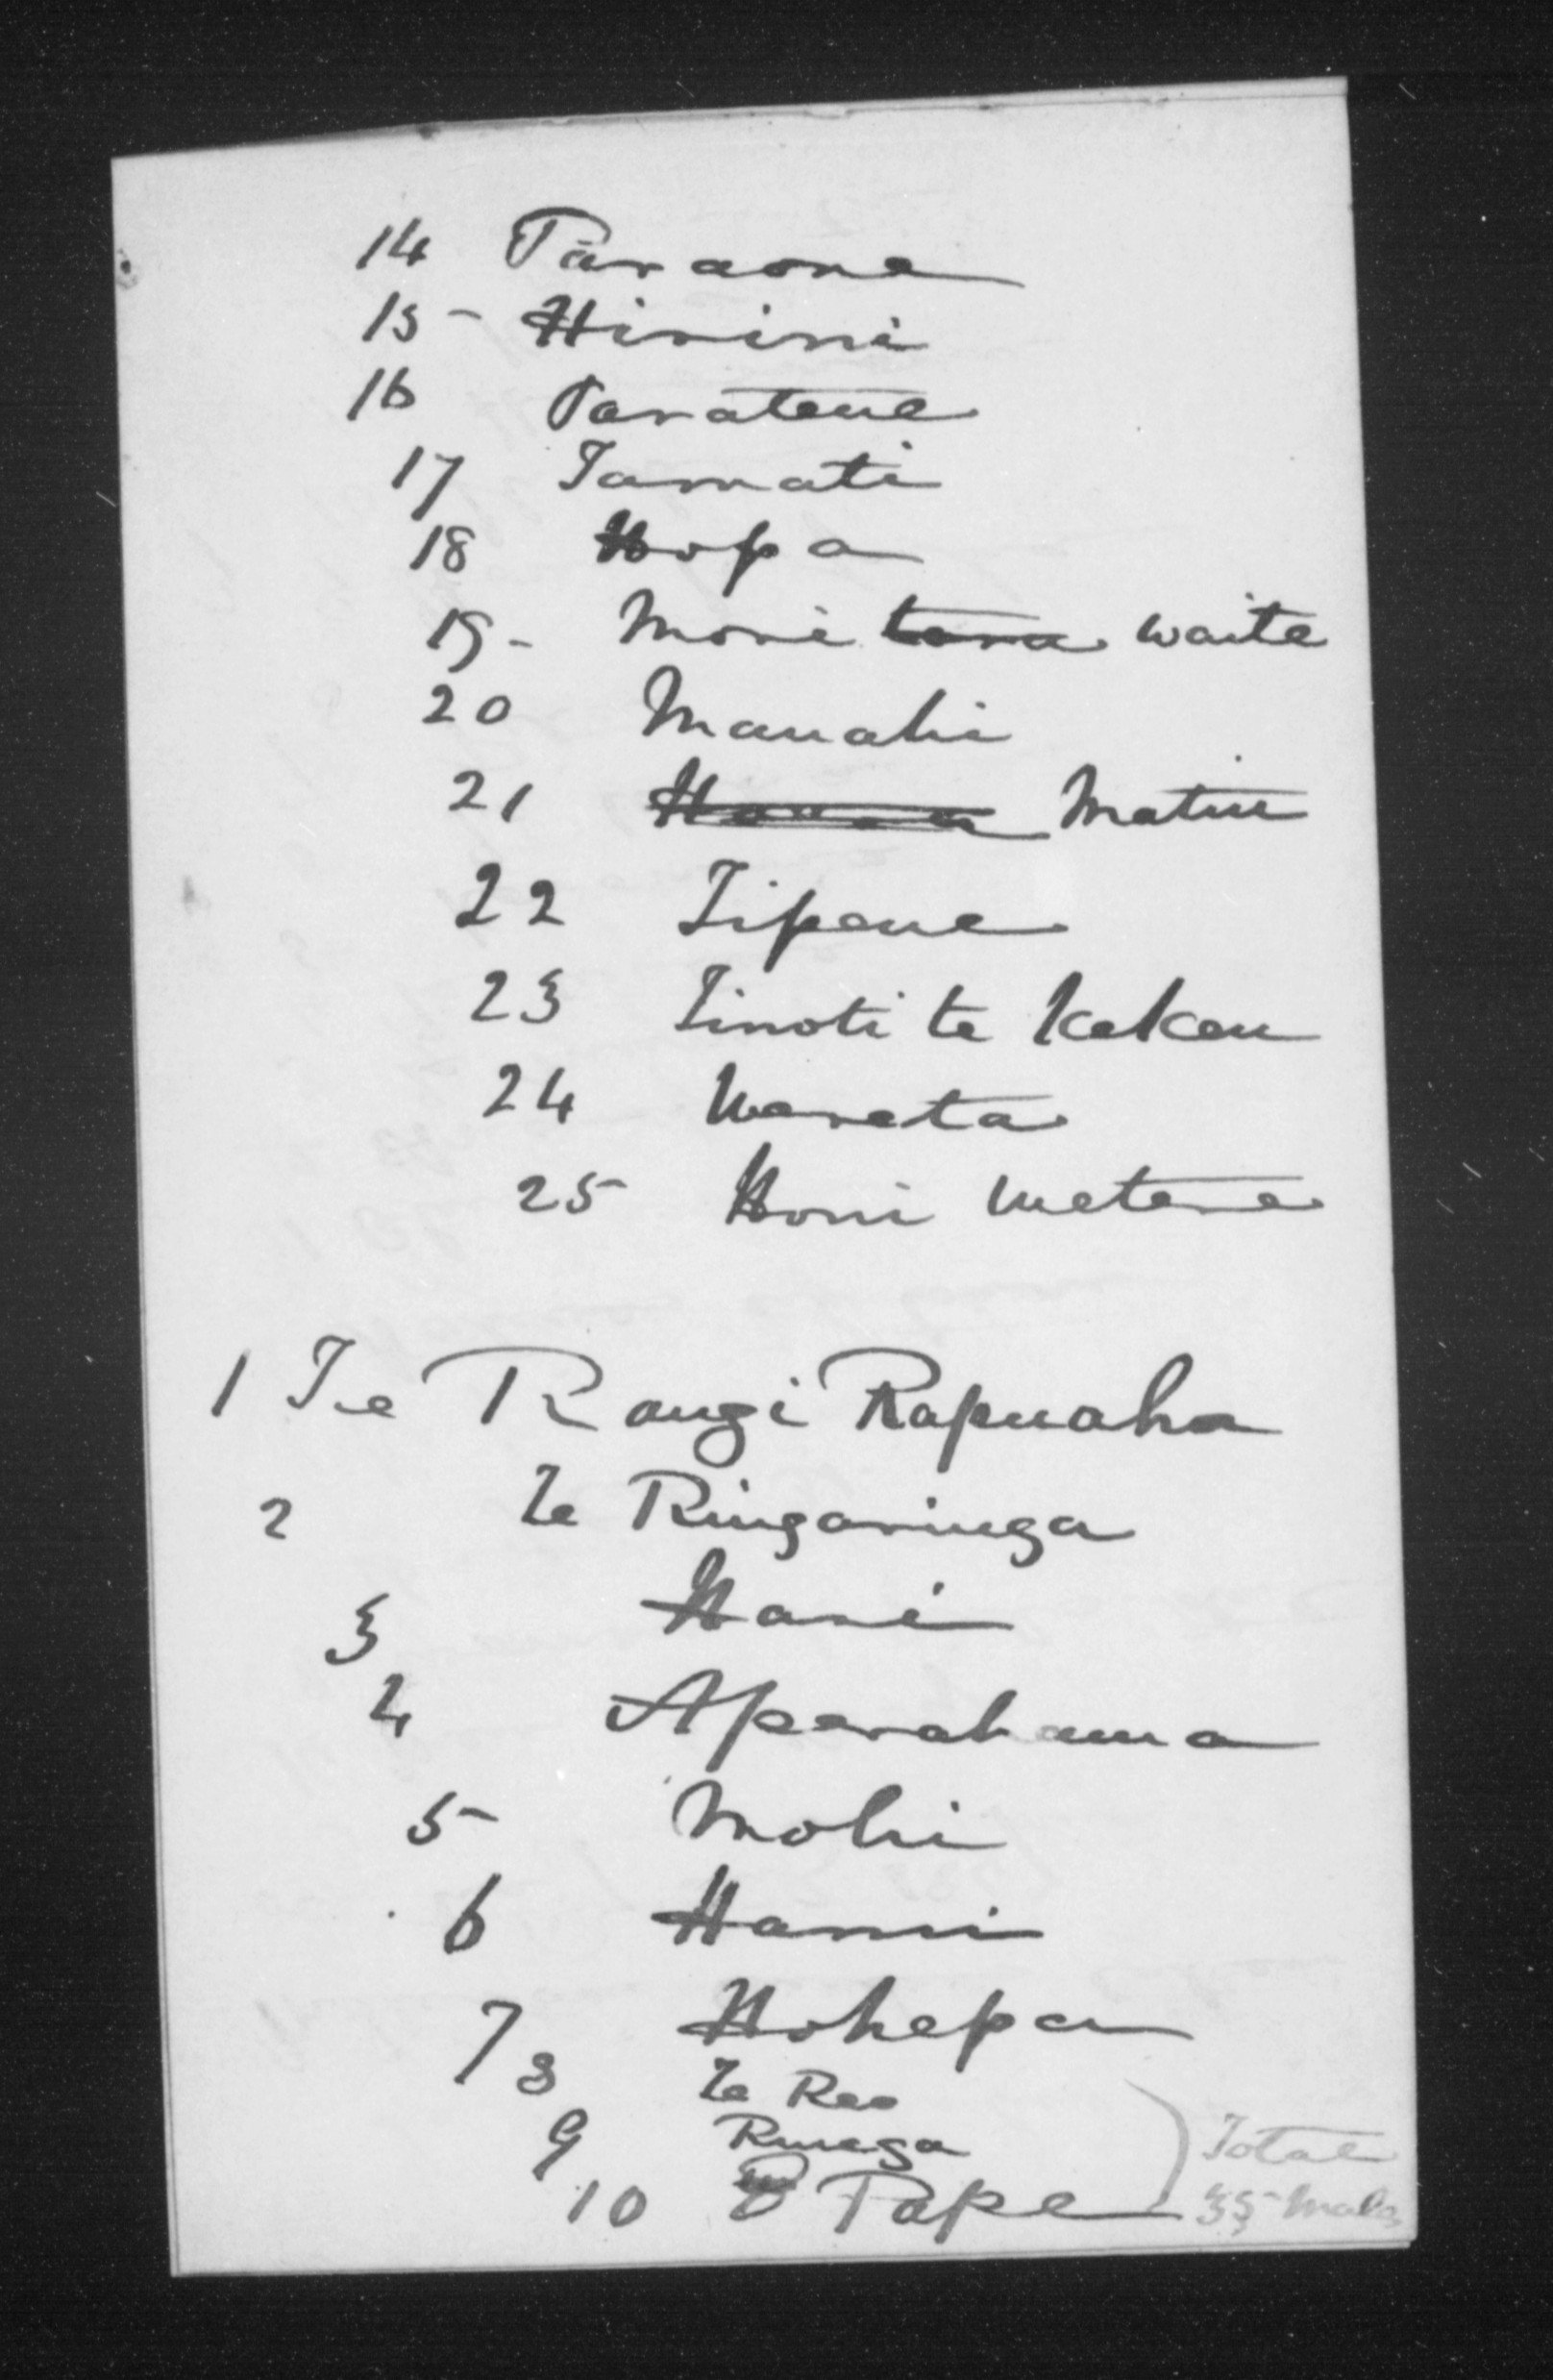 14 Paraone
15 - Hirini
16 Paratene
17 Tamati
18 Hopa
19 - Mori waite
20 Manahi
21 Matiu
22 Tipene
23 Timoti te Kekeu
24 Wereta
25 Honi Wetere
1 Te Rangi Rapuaha
2 Te Ringaringa
3 Hare
4 Aperahama
5 Mohi
6 Hami
7 Hohepa
8 Te Reo
9 Runga
10 Pape
Total
35 Males